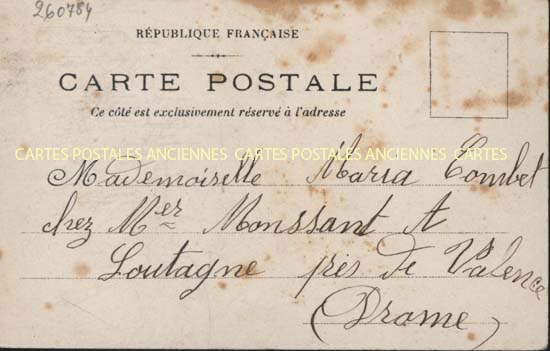 260784
RÉPUBLIQUE FRANÇAISE
CARTE POSTALE
Ce côté est exclusivement réservé à l'adresse
CARTES POSTALES ANCIENNES CARTES POSTALES ANCIENNES CARTES
Mademoiselle Maria Combet
chez Mer Monssant A
Loutagne près de Valence
(Drome)